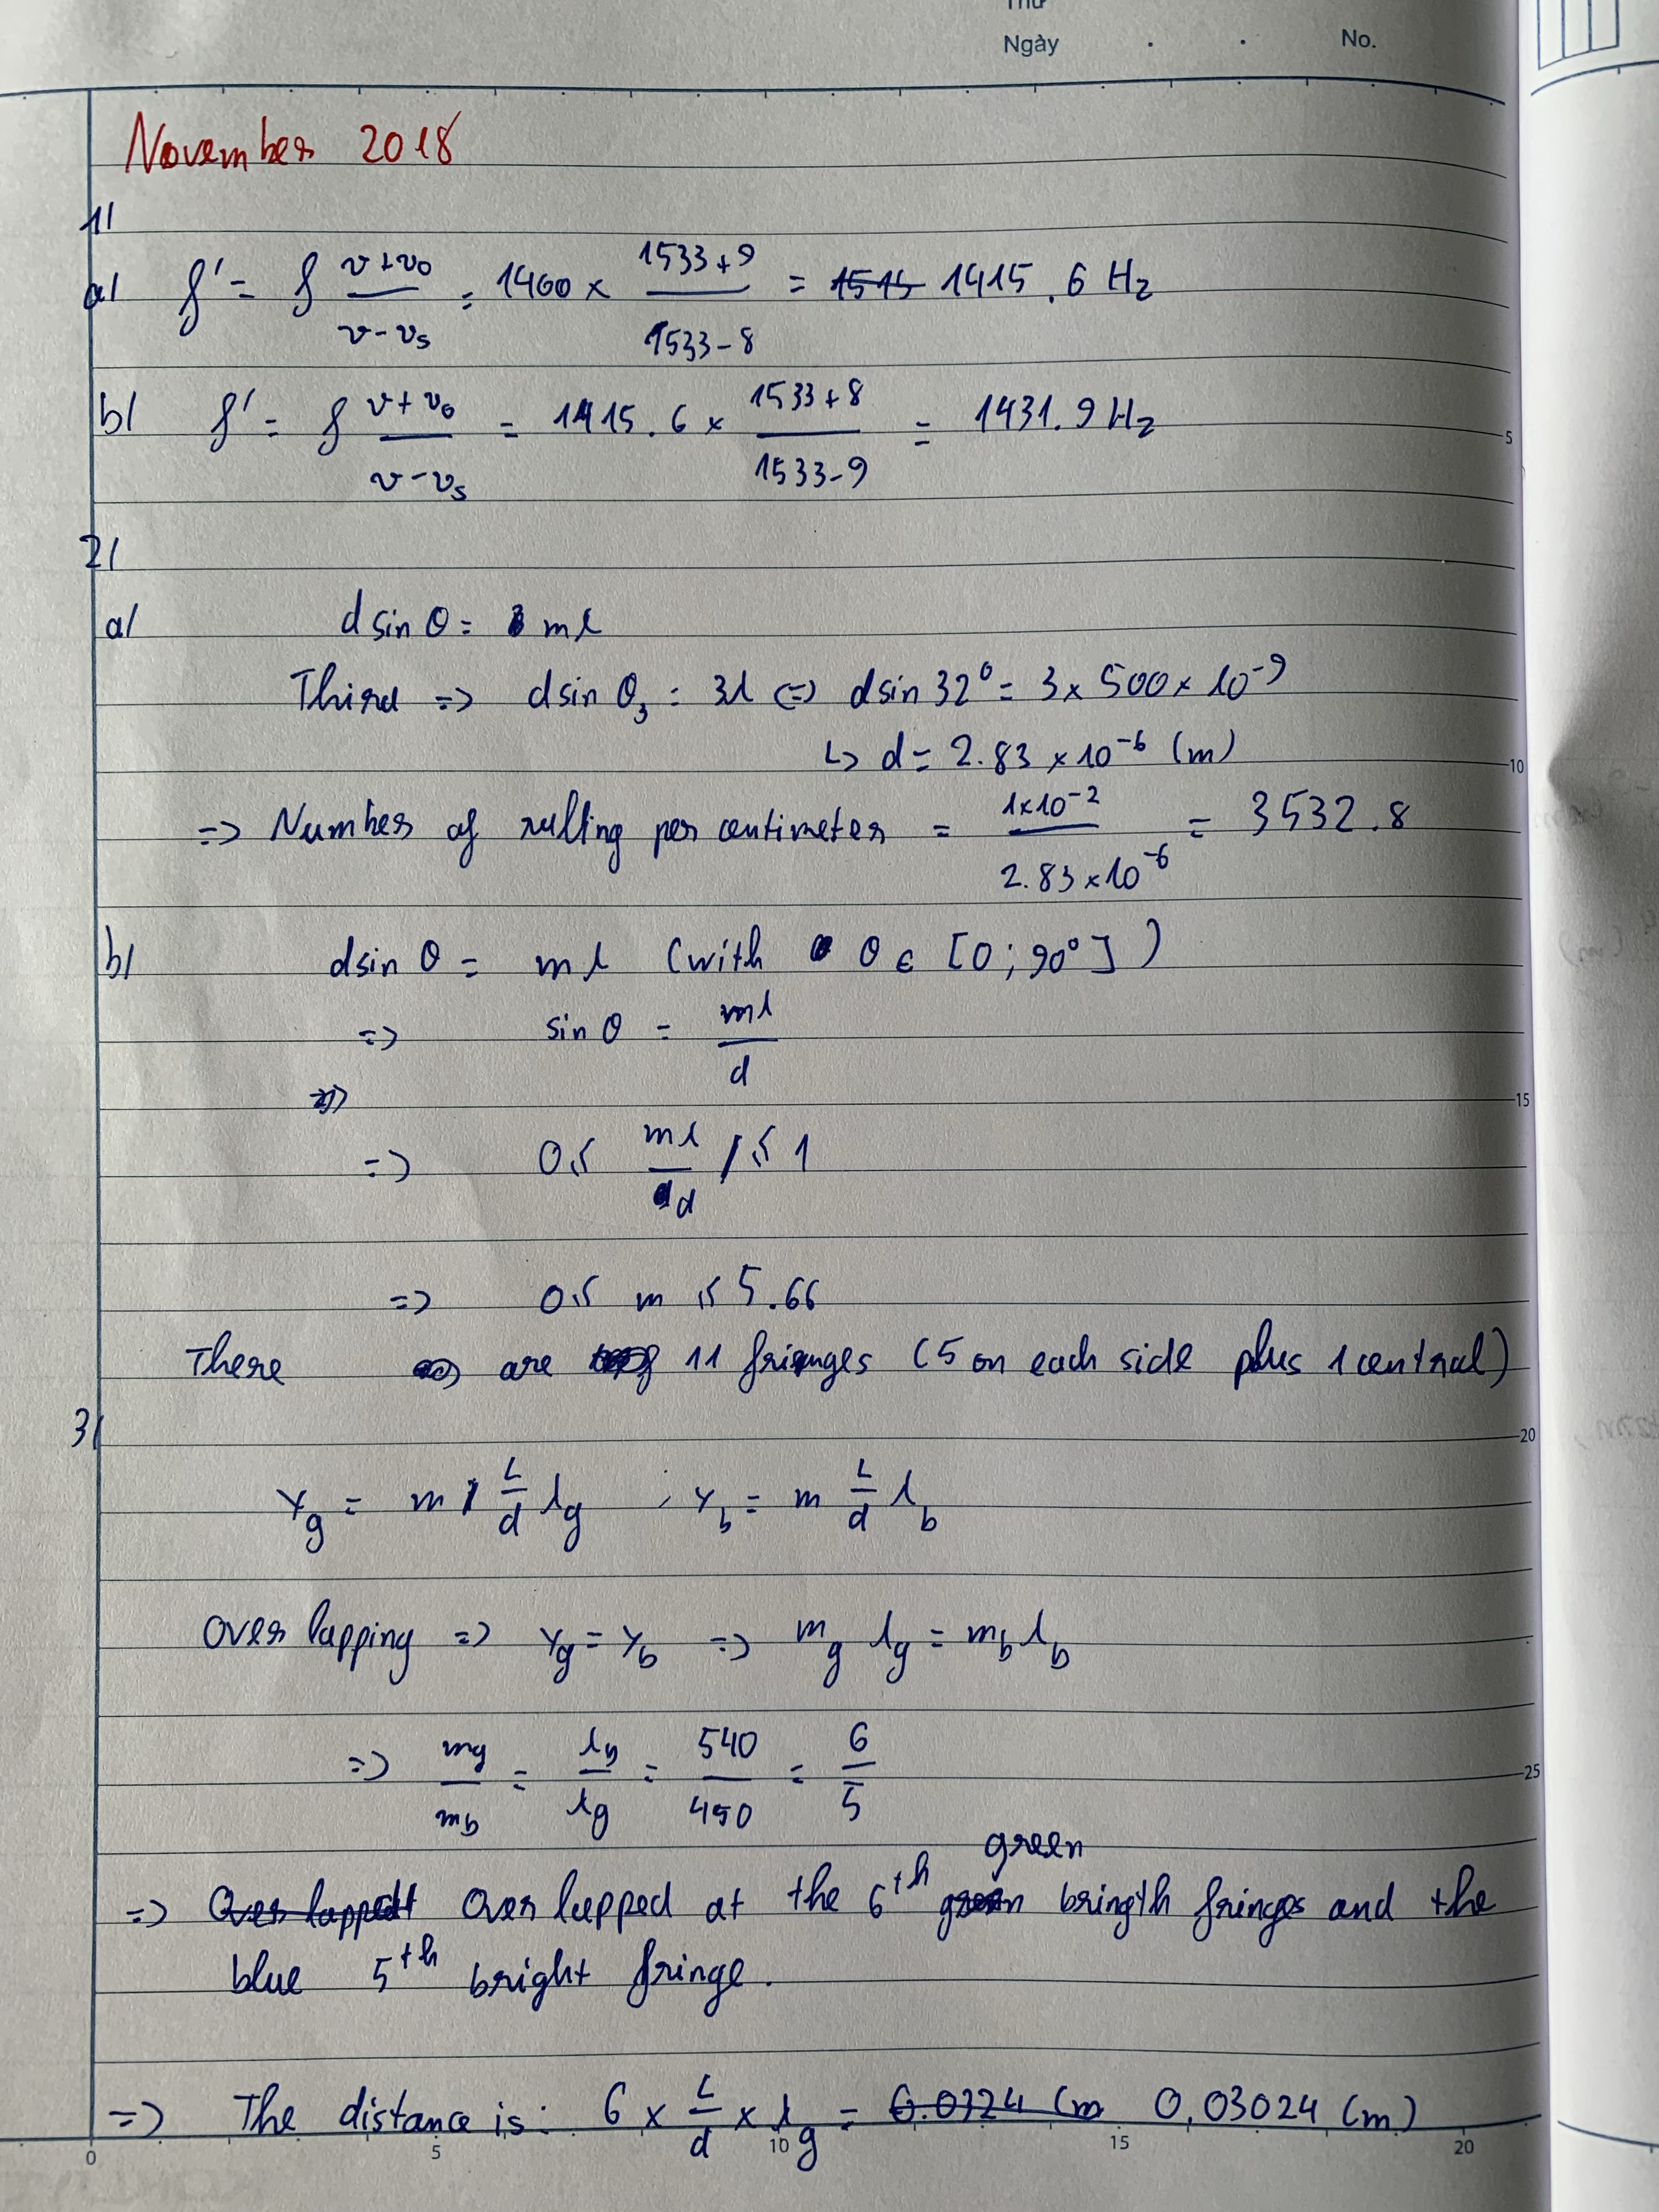 Thứ
Ngày . . No.
November 2018
1/
a/ f' = f (v+v₀)/(v-vₛ) = 1400 × (1533+9)/(1533-8) = 1415.6 Hz
b/ f' = f (v+v₀)/(v-vₛ) = 1415.6 × (1533+8)/(1533-9) = 1431.9 Hz
5
2/
a/ d sin θ = mλ
Third => dsin θ₃ = 3λ <=> dsin 32° = 3 × 500 × 10⁻⁹
↳ d = 2.83 × 10⁻⁶ (m)
10
=> Number of rulling per centimeter = (1×10⁻²)/(2.83×10⁻⁶) = 3532.8
b/ dsin θ = mλ (with θ ∈ [0; 90°])
=> sin θ = mλ/d
15
=> 0 ≤ mλ/d ≤ 1
=> 0 ≤ m ≤ 5.66
There are 11 frianges (5 on each side plus 1 central)
3/
20
y_g = m L/d λ_g , y_b = m L/d λ_b
Over lapping => y_g = y_b => m_g λ_g = m_b λ_b
=> m_g/m_b = λ_b/λ_g = 540/450 = 6/5
25
green
=> Over lapped at the 6ᵗʰ bringth fringes and the
blue 5ᵗʰ bright fringe.
=> The distance is: 6 × L/d × λ_g = 0,03024 (m)
0 5 10 15 20